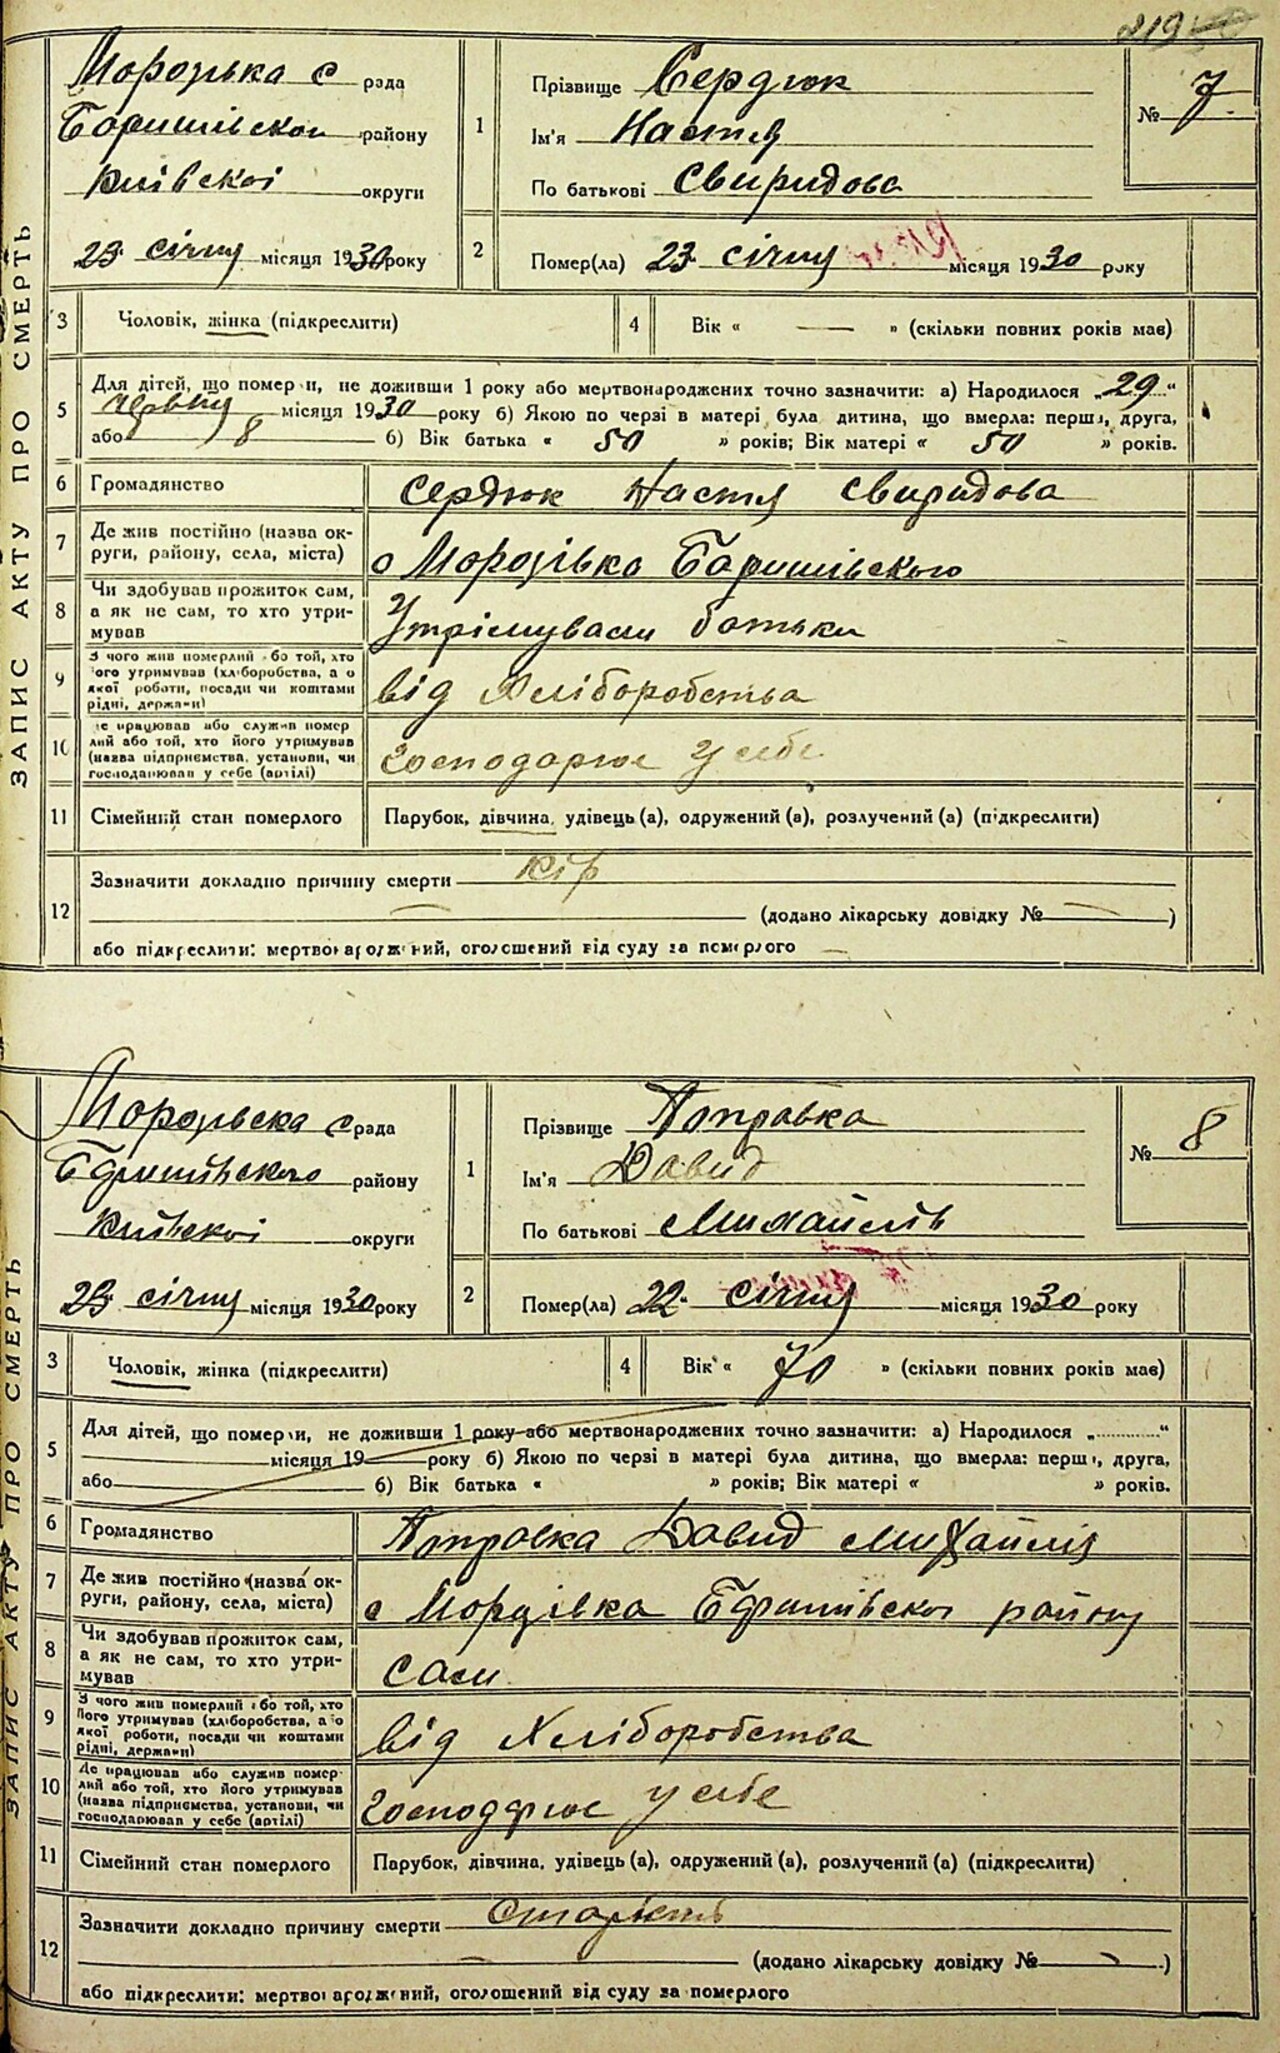 219
ЗАПИС АКТУ ПРО СМЕРТЬ
Морозівка с рада
Баришівского району
Київскоі округи
23 січня місяця 1930 року
1 Прізвище Сердюк
Ім'я Настя
По батькові Свиридова
№ 7
2 Помер(ла) 23 січня місяця 1930 року
3 Чоловік, жінка (підкреслити)
4 Вік « — » (скільки повних років має)
5 Для дітей, що померли, не доживши 1 року або мертвонароджених точно зазначити: а) Народилося „29“
червня місяця 1930 року б) Якою по черзі в матері була дитина, що вмерла: перша, друга,
або 8 б) Вік батька « 50 » років; Вік матері « 50 » років.
6 Громадянство Сердюк Настя Свиридова
7 Де жив постійно (назва ок-
руги, району, села, міста) с Морозівка Баришівского
8 Чи здобував прожиток сам,
а як не сам, то хто утри-
мував Утрімували батьки
9 З чого жив померлий або той, хто
його утримував (хліборобства, а о
якої роботи, посади чи коштами
рідні, держави) від Хліборобства
10 Де працював або служив помер
лий або той, хто його утримував
(назва підприємства, установи, чи
господарював у себе (артілі) Господарює у себе
11 Сімейний стан померлого Парубок, дівчина, удівець(а), одружений(а), розлучений(а) (підкреслити)
12 Зазначити докладно причину смерти кір
(додано лікарську довідку № — )
або підкреслити: мертвонароджений, оголошений від суду за померлого —
ЗАПИС АКТУ ПРО СМЕРТЬ
Морозівска с рада
Баришівского району
Київскоі округи
23 січня місяця 1930 року
1 Прізвище Поправка
Ім'я Давид
По батькові Михайлів
№ 8
2 Помер(ла) 22 січня місяця 1930 року
3 Чоловік, жінка (підкреслити)
4 Вік « 70 » (скільки повних років має)
5 Для дітей, що померли, не доживши 1 року або мертвонароджених точно зазначити: а) Народилося „..........“
місяця 19 року б) Якою по черзі в матері була дитина, що вмерла: перша, друга,
або б) Вік батька « » років; Вік матері « » років.
6 Громадянство Поправка Давид Михайлів
7 Де жив постійно (назва ок-
руги, району, села, міста) с Морозівка Баришівског району
8 Чи здобував прожиток сам,
а як не сам, то хто утри-
мував Сам
9 З чого жив померлий або той, хто
його утримував (хліборобства, а о
якої роботи, посади чи коштами
рідні, держави) від Хліборобства
10 Де працював або служив помер-
лий або той, хто його утримував
(назва підприємства, установи, чи
господарював у себе (артілі) Господарює у себе
11 Сімейний стан померлого Парубок, дівчина, удівець(а), одружений(а), розлучений(а) (підкреслити)
12 Зазначити докладно причину смерти Старість
(додано лікарську довідку № — )
або підкреслити: мертвонароджений, оголошений від суду за померлого